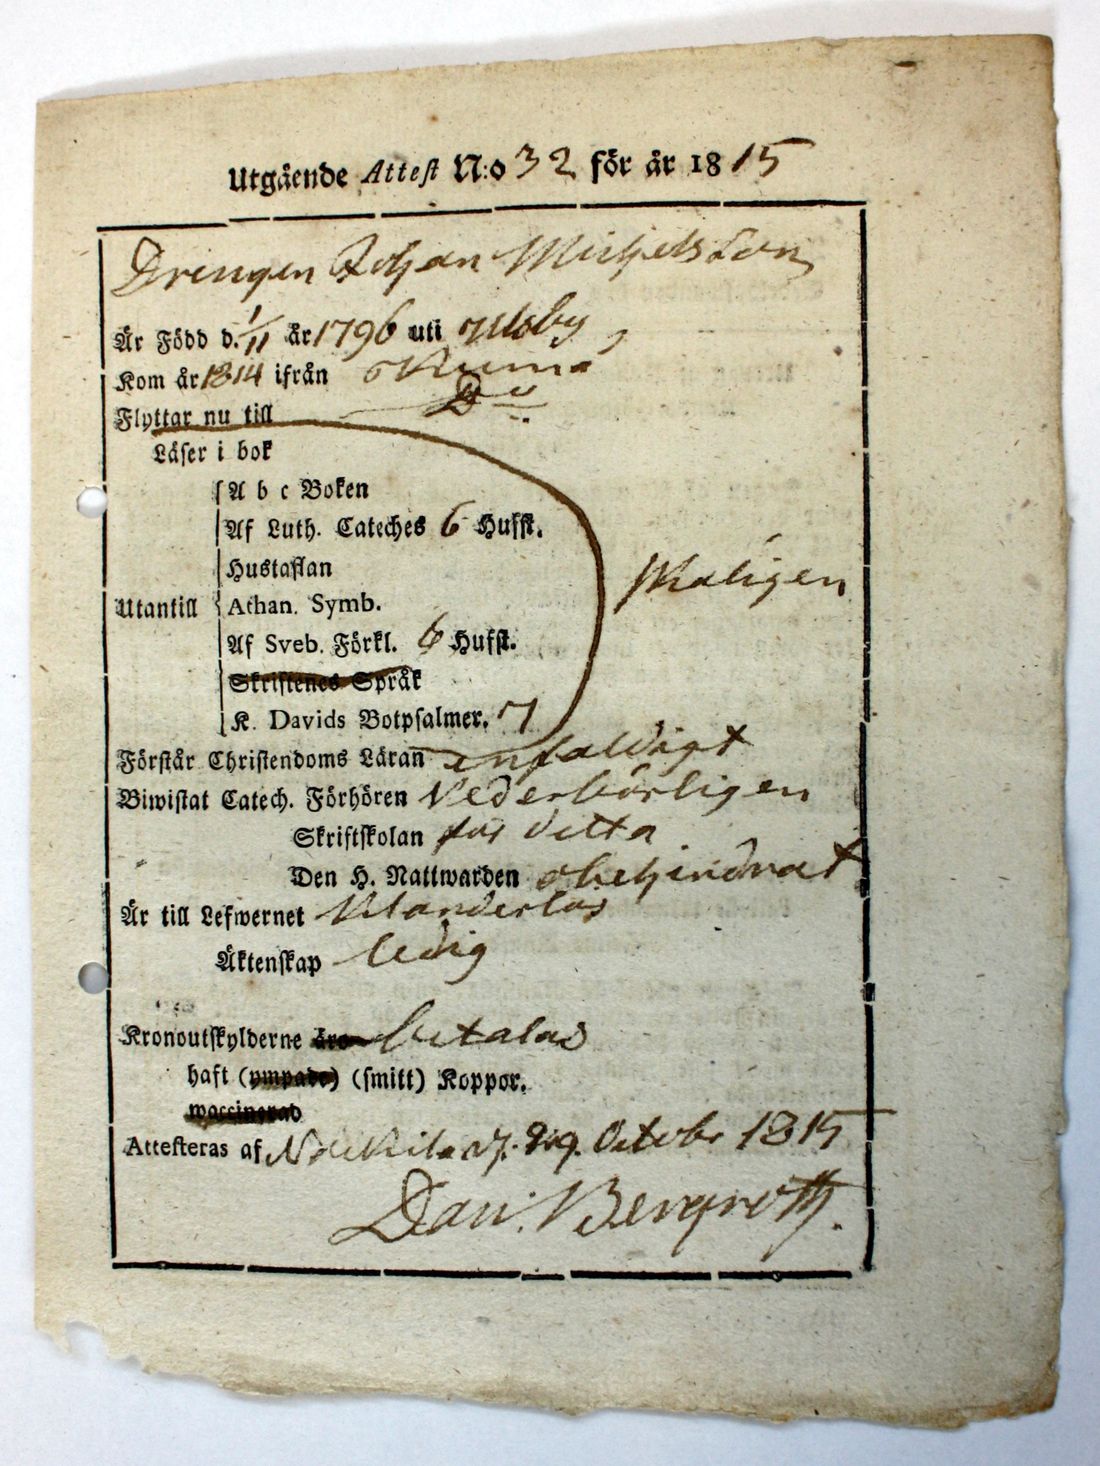 Utgående Attest N:o 32 för år 1815
Drengen Johan Michelsson
Är Född d. 1/11 år 1796 uti
Kom år 1814 ifrån
Flyttar nu till Do
Läser i bok
A b c Boken
Af Luth. Cateches 6 Hufst.
Hustaflan
Utantill Athan. Symb.
Af Sveb. Förkl. 6 Hufst.
Skriftenes Språk
K. Davids Botpsalmer. 7
Måligen
Förstår Christendoms Läran enfaldigt
Biwistat Catech. Förhören Vederbörligen
Skriftskolan för detta
Den H. Nattwarden obehindrat
Är till Lefwernet Klanderlös
Äktenskap ledig
Kronoutskylderne äro betalas
haft (ympade) (smitt) Koppor.
waccinerad
Attesteras af d. 9. Octobr 1815
Dan. Bergroth.